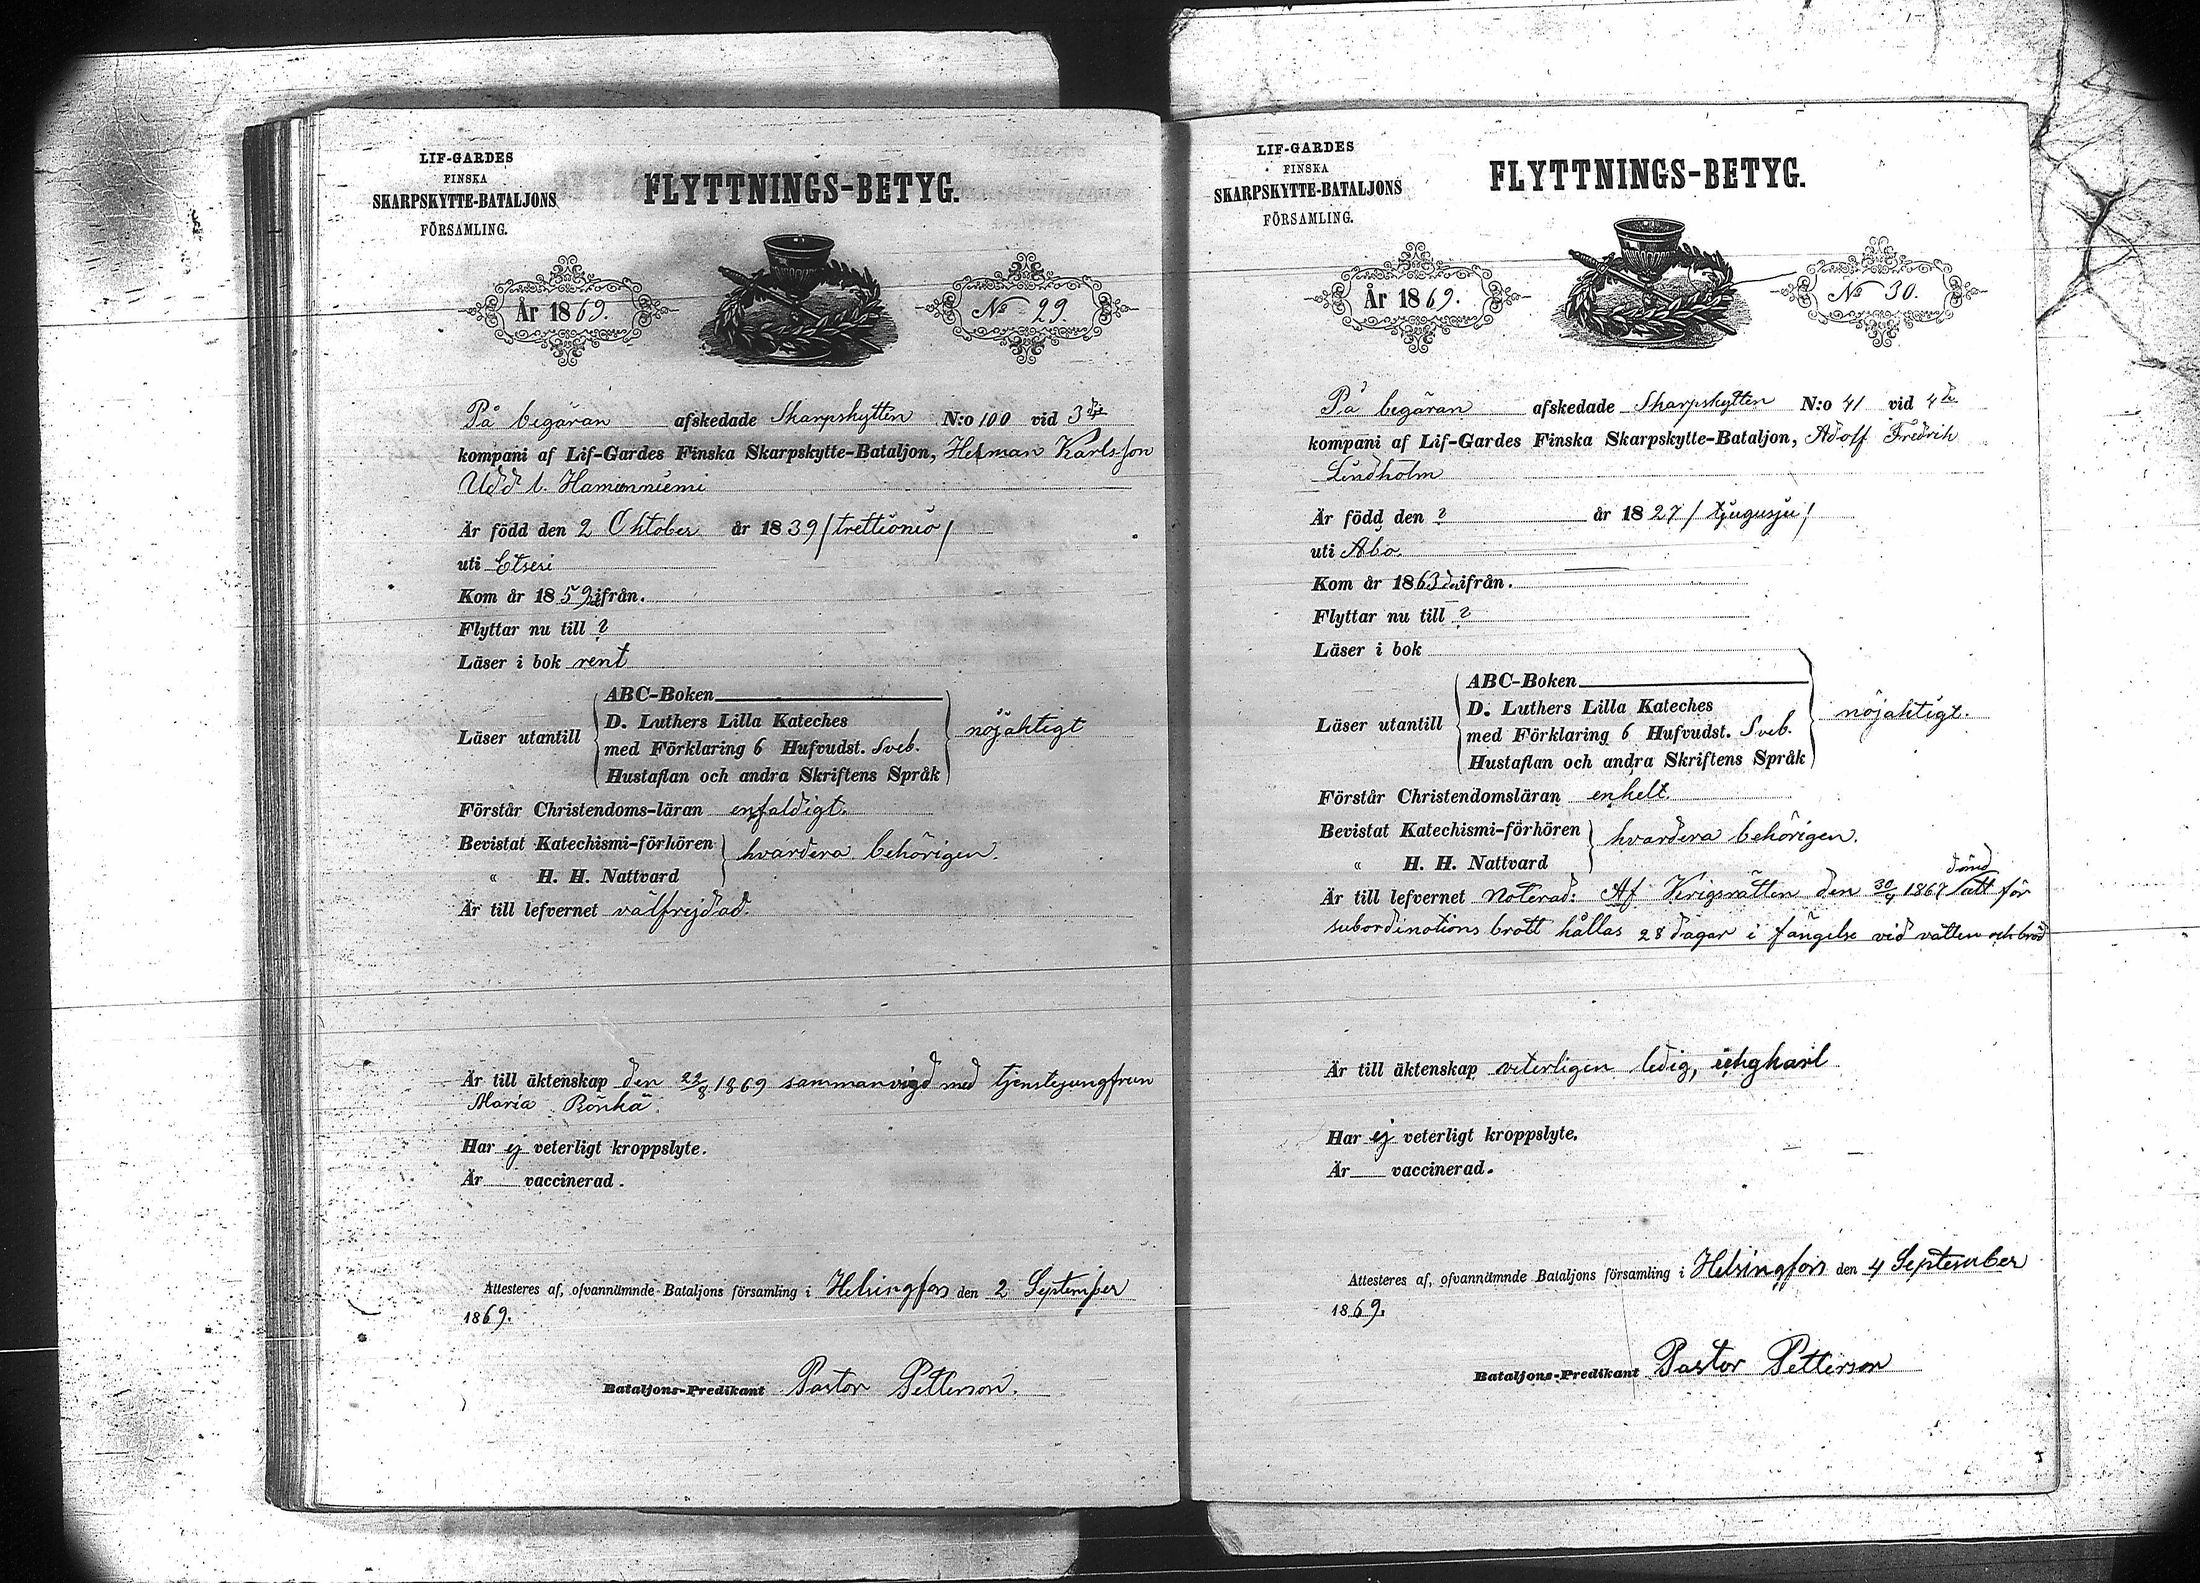 LIF-GARDES
FINSKA
SKARPSKYTTE-BATALJONS
FÖRSAMLING.
FLYTTNINGS-BETYG.
År 1869.
No 29.
På begäran afskedade Skarpskytten N:o 100 vid 3dje
kompani af Lif-Gardes Finska Skarpskytte-Bataljon, Herman Karlsson
Udd l. Hamunniemi
Är född den 2 Oktober år 1839 / trettionio /
uti Etseri
Kom år 1859 ifrån.
Flyttar nu till ?
Läser i bok rent
Läser utantill
ABC-Boken
D. Luthers Lilla Kateches
med Förklaring 6 Hufvudst. Sveb.
Hustaflan och andra Skriftens Språk
nöjaktigt
Förstår Christendoms-läran enfaldigt.
Bevistat Katechismi-förhören
« H. H. Nattvard
hvardera behörigen.
Är till lefvernet välfrejdad.
Är till äktenskap den 22/8 1869 sammanvigd med tjenstejungfrun
Maria Rönkä.
Har ej veterligt kroppslyte.
Är vaccinerad.
Attesteres af, ofvannämnde Bataljons församling i Helsingfors den 2 September
1869.
Bataljons-Predikant Pastor Petterson.
LIF-GARDES
FINSKA
SKARPSKYTTE-BATALJONS
FÖRSAMLING.
FLYTTNINGS-BETYG.
År 1869.
No 30.
På begäran afskedade Skarpskytten N:o 41 vid 4de
kompani af Lif-Gardes Finska Skarpskytte-Bataljon, Adolf Fredrik
Lindholm
Är född den ? år 1827 / tjugusju /
uti Åbo.
Kom år 1863 ifrån.
Flyttar nu till ?
Läser i bok
Läser utantill
ABC-Boken
D. Luthers Lilla Kateches
med Förklaring 6 Hufvudst. Sveb.
Hustaflan och andra Skriftens Språk
nöjaktigt.
Förstår Christendomsläran enkelt.
Bevistat Katechismi-förhören
« H. H. Nattvard
hvardera behörigen.
dömd
Är till lefvernet Noterad: Af Krigsrätten den 30/4 1867 att för
subordinations brott hållas 28 dagar i fängelse vid vatten och bröd
Är till äktenskap veterligen ledig, ungkarl
Har ej veterligt kroppslyte.
Är vaccinerad.
Attesteres af, ofvannämnde Bataljons församling i Helsingfors den 4 September
1869.
Bataljons-Predikant Pastor Petterson